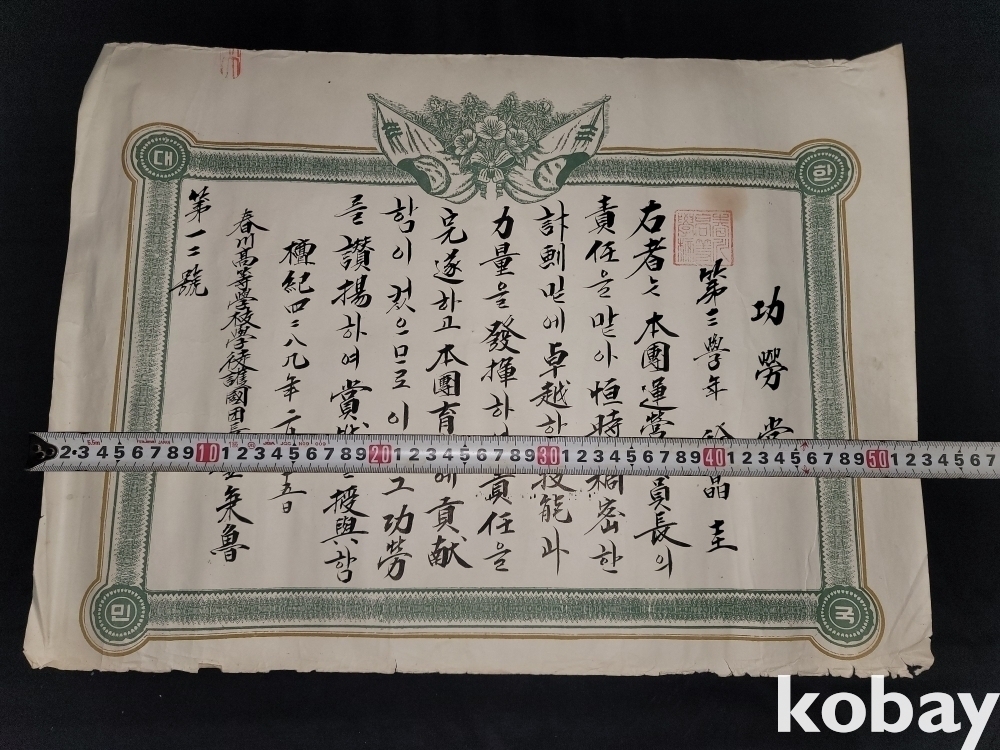 한
대
국
민
功勞
第三學年 晶圭
右者는 本團運營 員長의
責任을 맡아 恒時 稠密한
計劃 밑에 卓越한 技能과
力量을 發揮하 責任을
完遂하고 本團育 에 貢献
함이 컸으므로 이 그 功勞
를 讃揚하여 賞狀 授與함
檀紀四二八九年 二 五日
春川高等學校學徒護國团長 英魯
第一二號
2 3 4 5 6 7 8 9 10 1 2 3 4 5 6 7 8 9 20 1 2 3 4 5 6 7 8 9 30 1 2 3 4 5 6 7 8 9 40 1 2 3 4 5 6 7 8 9 50 1 2 3 4 5 6 7
5.5m
kobay